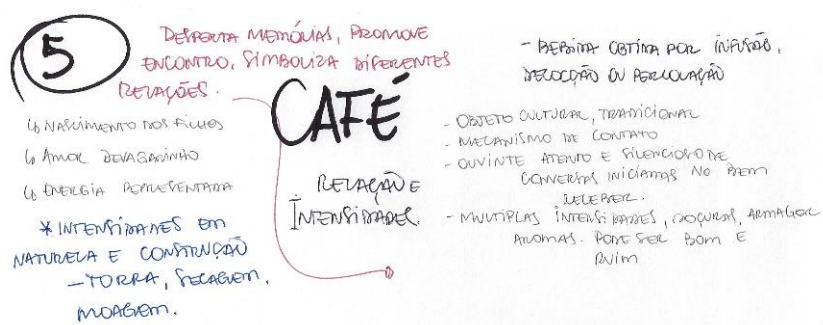 5
DESPERTA MEMÓRIAS, PROMOVE
ENCONTRO, SIMBOLIZA DIFERENTES
RELAÇÕES.
↳ NASCIMENTO DOS FILHOS
↳ AMOR DEVAGARINHO
↳ ENERGIA REPRESENTADA
* INTENSIDADES EM
NATUREZA E CONSTRUÇÃO
- TORRA, SECAGEM,
MOAGEM.
CAFÉ
RELAÇÃO E
INTENSIDADES.
- BEBIDA OBTIDA POR INFUSÃO,
DECOCÇÃO OU PERCOLAÇÃO
- OBJETO CULTURAL, TRADICIONAL
- MECANISMO DE CONTATO
- OUVINTE ATENTO E SILENCIOSO DE
CONVERSAS INICIADAS NO BEM
RECEBER.
- MULTIPLAS INTENSIDADES, DOÇURAS, AMARGOR
AROMAS. PODE SER BOM E
RUIM